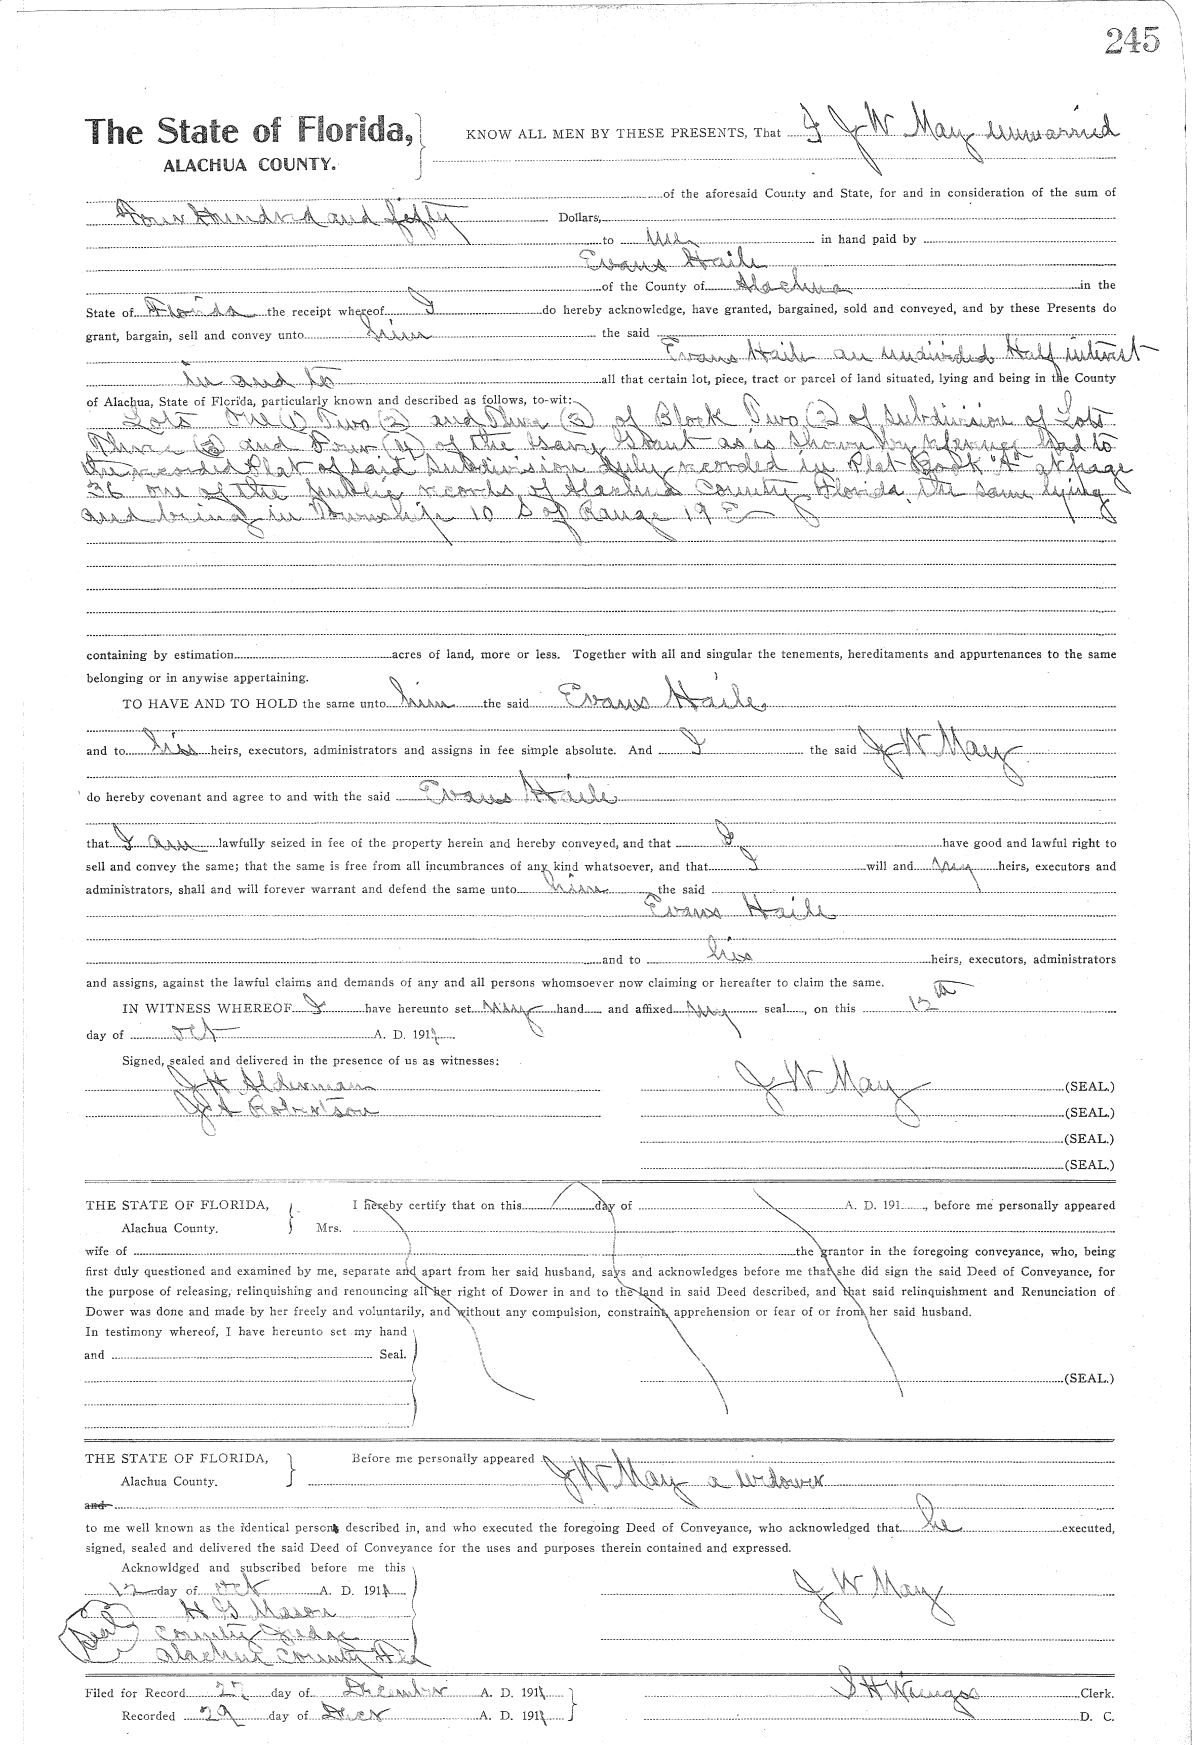 245
The State of Florida, KNOW ALL MEN BY THESE PRESENTS, That I J W May unmarried
ALACHUA COUNTY.
of the aforesaid County and State, for and in consideration of the sum of
Four Hundred and fifty Dollars,
to me in hand paid by
Evans Haile
of the County of Alachua in the
State of Florida the receipt whereof I do hereby acknowledge, have granted, bargained, sold and conveyed, and by these Presents do
grant, bargain, sell and convey unto him the said
Evans Haile an undivided Half interest
in and to all that certain lot, piece, tract or parcel of land situated, lying and being in the County
of Alachua, State of Florida, particularly known and described as follows, to-wit:
Lots One (1) Two (2) and Three (3) of Block Two (2) of Subdivision of Lots
Three (3) and Four (4) of the Gary Grant as is shown by reference had to
the recorded Plat of said Subdivision duly recorded in Plat Book "A" at page
36 one of the public records of Alachua County, Florida. the same lying
and being in Township 10 S of Range 19 E
containing by estimation acres of land, more or less. Together with all and singular the tenements, hereditaments and appurtenances to the same
belonging or in anywise appertaining.
TO HAVE AND TO HOLD the same unto him the said Evans Haile
and to his heirs, executors, administrators and assigns in fee simple absolute. And I the said J W May
do hereby covenant and agree to and with the said Evans Haile
that I am lawfully seized in fee of the property herein and hereby conveyed, and that I have good and lawful right to
sell and convey the same; that the same is free from all incumbrances of any kind whatsoever, and that I will and my heirs, executors and
administrators, shall and will forever warrant and defend the same unto him the said
Evans Haile
and to his heirs, executors, administrators
and assigns, against the lawful claims and demands of any and all persons whomsoever now claiming or hereafter to claim the same.
IN WITNESS WHEREOF I have hereunto set my hand and affixed my seal, on this 12th
day of Oct A. D. 191
Signed, sealed and delivered in the presence of us as witnesses:
J H Alderman J W May (SEAL.)
J A Robertson (SEAL.)
(SEAL.)
(SEAL.)
THE STATE OF FLORIDA, I hereby certify that on this day of A. D. 191, before me personally appeared
Alachua County. Mrs.
wife of the grantor in the foregoing conveyance, who, being
first duly questioned and examined by me, separate and apart from her said husband, says and acknowledges before me that she did sign the said Deed of Conveyance, for
the purpose of releasing, relinquishing and renouncing all her right of Dower in and to the land in said Deed described, and that said relinquishment and Renunciation of
Dower was done and made by her freely and voluntarily, and without any compulsion, constraint, apprehension or fear of or from her said husband.
In testimony whereof, I have hereunto set my hand
and Seal.
(SEAL.)
THE STATE OF FLORIDA, Before me personally appeared
Alachua County. J W May a widower
and
to me well known as the identical persons described in, and who executed the foregoing Deed of Conveyance, who acknowledged that he executed,
signed, sealed and delivered the said Deed of Conveyance for the uses and purposes therein contained and expressed.
Acknowldged and subscribed before me this
12 day of Oct A. D. 191 J W May
H G Mason
Seal County Judge
Alachua County Fla
Filed for Record 27 day of December A. D. 191 S H Wienges Clerk.
Recorded 29 day of Dec A. D. 191 D. C.